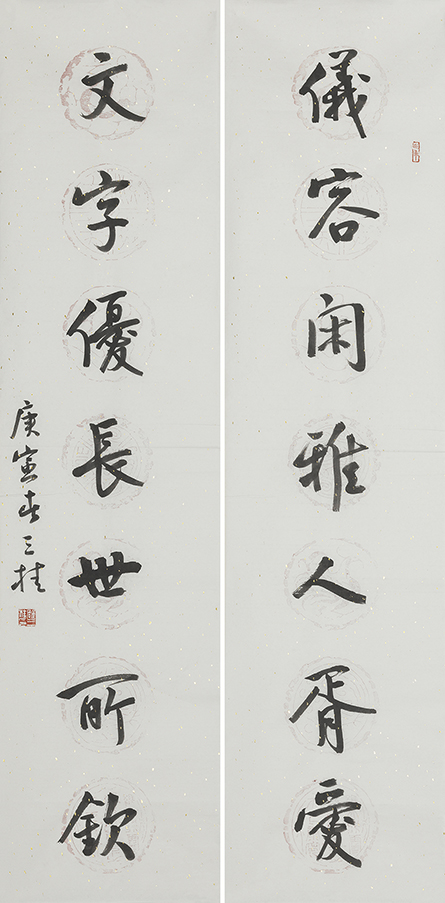 儀容闲雅人胥愛
文字優長世所欽
庚寅春三桂